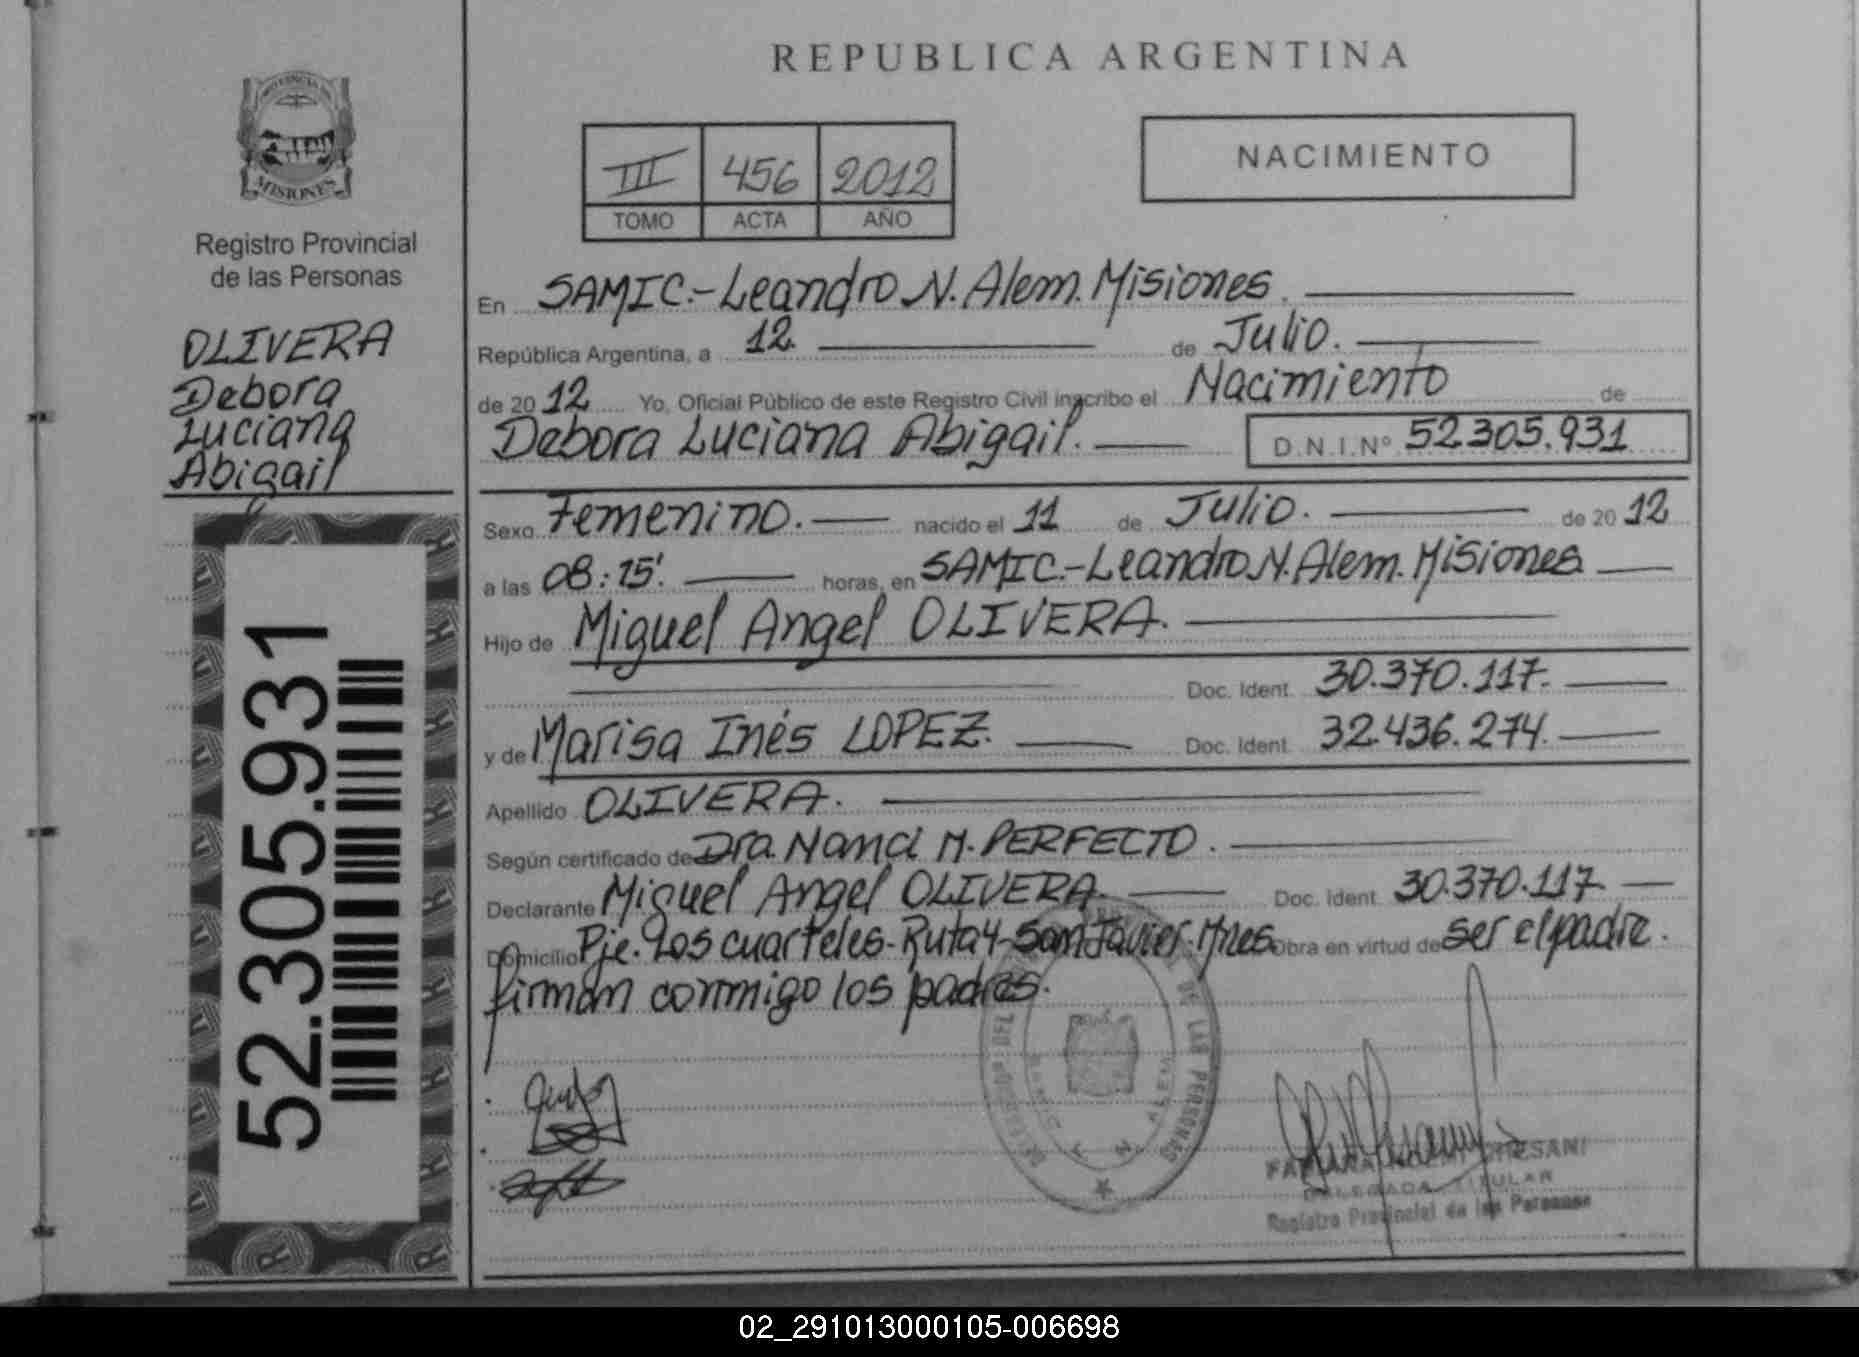 REPUBLICA ARGENTINA
PROVINCIA DE
MISIONES
Registro Provincial
de las Personas
OLIVERA
Debora
Luciana
Abigail
52.305.931
III 456 2012
TOMO ACTA AÑO
NACIMIENTO
En SAMIC.-Leandro N. Alem. Misiones.
República Argentina, a 12. de Julio.
de 2012 Yo, Oficial Público de este Registro Civil inscribo el Nacimiento de
Debora Luciana Abigail. D.N.I.Nº 52.305.931
Sexo Femenino. nacido el 11 de Julio. de 2012
a las 08:15'. horas, en SAMIC.-Leandro N. Alem. Misiones
Hijo de Miguel Angel OLIVERA.
Doc. Ident. 30.370.117.
y de Marisa Inés LOPEZ. Doc. Ident. 32.436.274.
Apellido OLIVERA.
Según certificado de Dra. Nanci M. PERFECTO.
Declarante Miguel Angel OLIVERA. Doc. Ident. 30.370.117
Domicilio Pje. Los cuarteles-Ruta 4-San Javier. Mnes Obra en virtud de ser el padre.
firman conmigo los padres.
DE LAS PERSONAS
DELEGADA TITULAR
Registro Provincial de las Personas
02_291013000105-006698